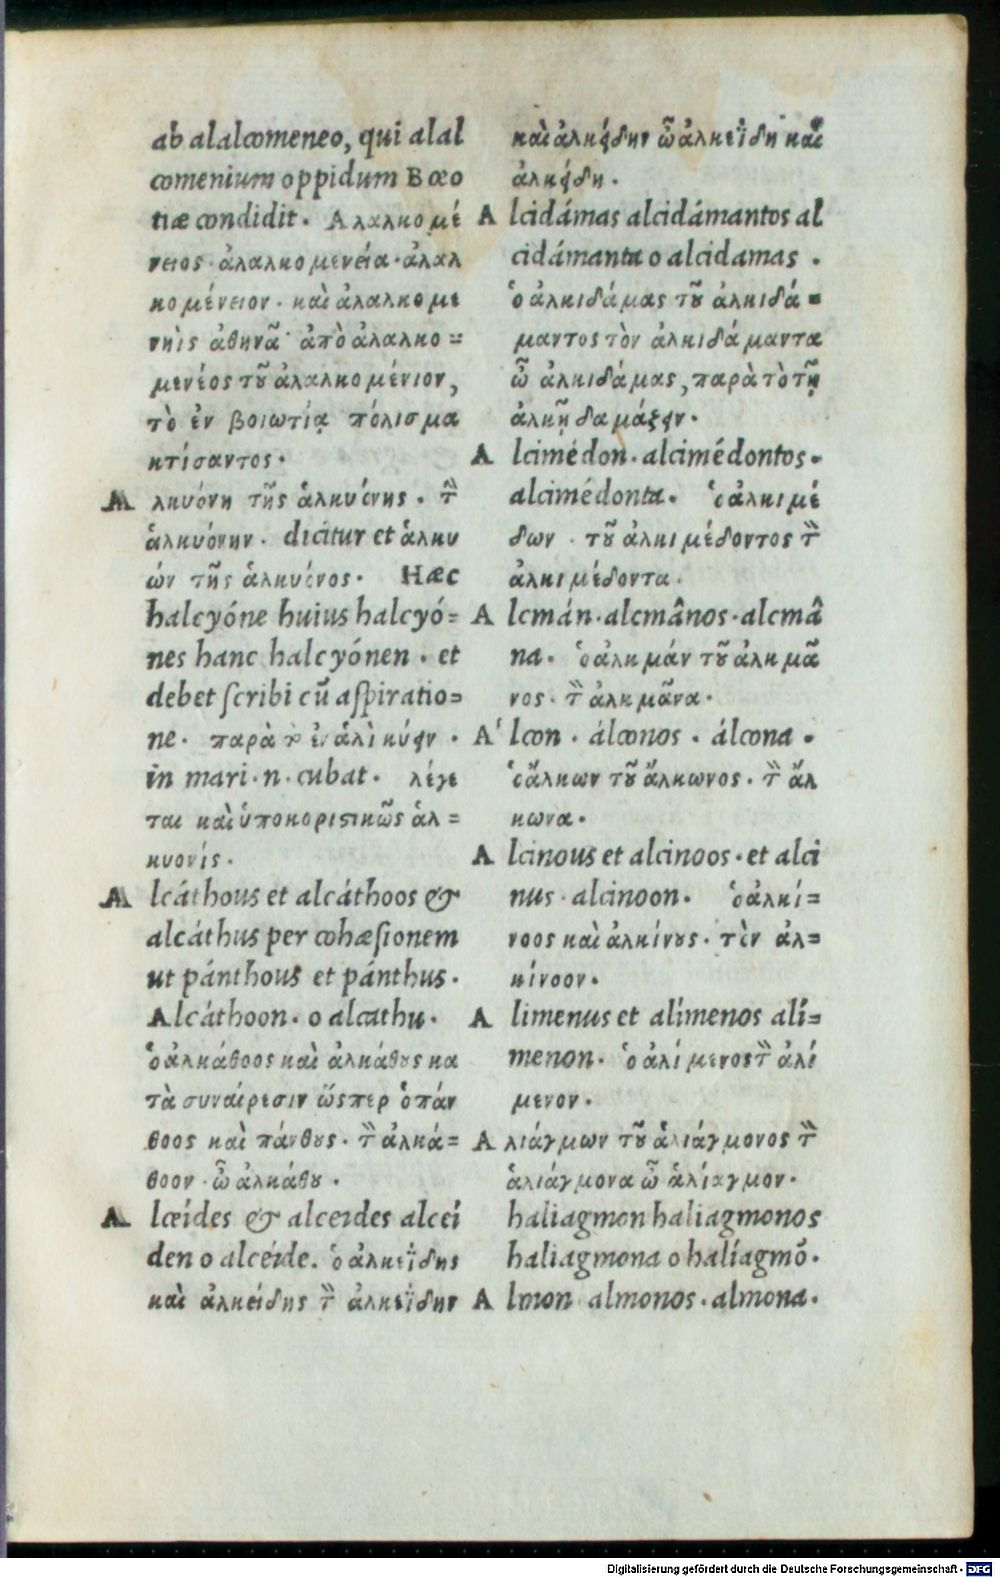 ab alalcomeneo, qui alal
comenium oppidum Bœo
tiæ condidit. Αλαλκομέ
νειος· ἀλαλκομενεία·ἀλαλ
κομένειον· καὶ ἀλαλκομε
νηὶς ἀθηνᾶ ἀπὸ ἀλαλκο=
μενέος τȣ͂ ἀλαλκομένιον,
τὸ ἐν βοιωτίᾳ πόλισμα
κτίσαντος·
Α λκυόνη τῆς ἁλκυόνης. τ̃
ἁλκυόνην. dicitur et ἁλκυ
ών τῆς ἁλκυόνος. Hæc
halcyóne huius halcyó=
nes hanc halcyónen. et
debet ſcribi cũ aſpiratio=
ne. παρὰ ἐν ἁλὶ κύειν.
in mari.n.cubat. λέγε
ται καὶ ὑποκοριστικῶς ἁλ=
κυονίς.
A lcáthous et alcáthoos &
alcáthus per cohæſionem
ut pánthous et pánthus.
Alcáthoon. o alcathu.
ὁ ἀλκάθοος καὶ ἀλκάθȣς κα
τὰ συναίρεσιν ὥςπερ ὁ πάν
θοος καὶ πάνθȣς. τ̃ ἀλκά=
θοον. ὦ ἀλκάθȣ.
A lceídes & alceides alceí
den o alceíde. ὁ ἀλκεΐδης
καὶ ἀλκείδης τ̃ ἀλκεΐδην
καὶ ἀλκείδην ὦ ἀλκεΐδη καὶ
ἀλκείδη.
A lcidámas alcidámantos al
cidámanta o alcidamas.
ὁ ἀλκιδάμας τȣ͂ ἀλκιδά=
μαντος τὸν ἀλκιδάμαντα
ὦ ἀλκιδάμας, παρὰ τὸ τῇ
ἀλκῇ δαμάζειν.
A lcimédon. alcimédontos.
alcimédonta. ὁ ἀλκιμέ
δων. τȣ͂ ἀλκιμέδοντος τ̃
ἀλκιμέδοντα.
A lcmán.alcmânos.alcmâ
na. ὁ ἀλκμάν τȣ͂ ἀλκμᾶ
νος. τ̃ ἀλκμᾶνα.
A' lcon. álconos. álcona.
ὁ ἄλκων τȣ͂ ἄλκωνος. τ̃ ἄλ
κωνα.
A lcinous et alcinoos.et alci
nus. alcinoon. ὁ ἀλκί=
νοος καὶ ἀλκίνȣς. τὸν ἀλ=
κίνοον.
A limenus et alímenos alí=
menon. ὁ ἀλίμενος τ̃ ἀλί
μενον.
A λιάγμων τȣ͂ ἁλιάγμονος τ̃
ἁλιάγμονα ὦ ἁλίαγμον.
haliagmon haliagmonos
haliagmona o halíagmõ.
A lmon almonos.almona.
Digitalisierung gefördert durch die Deutsche Forschungsgemeinschaft - DFG